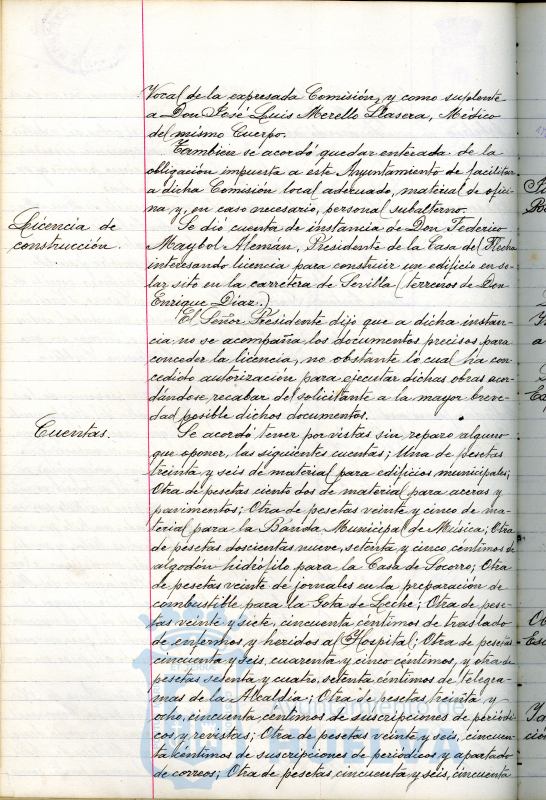 Vocal de la expresada Comisión, y como suplente
a Don José Luis Merello Llasera, Médico
del mismo Cuerpo.
También se acordó quedar enterada de la
obligación impuesta a este Ayuntamiento de facilitar
a dicha Comisión local adecuado, material de ofici-
na y, en caso necesario, personal subalterno.
Licencia de
construcción.
Se dió cuenta de instancia de Don Federico
Maybol Alemán, Presidente de la Casa de Flecha
interesando licencia para construir un edificio en so-
lar sito en la carretera de Sevilla (terrenos de Don
Enrique Díaz.)
El Señor Presidente dijo que a dicha instan-
cia no se acompaña los documentos precisos para
conceder la licencia, no obstante lo cual ha con-
cedido autorización para ejecutar dichas obras acor-
dándose, recabar del solicitante a la mayor breve-
dad posible dichos documentos.
Cuentas.
Se acordó tener por vistas sin reparo alguno
que oponer, las siguientes cuentas; Una de pesetas
treinta y seis de material para edificios municipales;
Otra de pesetas ciento dos de material para aceras y
pavimentos; Otra de pesetas veinte y cinco de ma-
terial para la Banda Municipal de Música; Otra
de pesetas doscientas nueve, setenta y cinco céntimos de
algodón hidrófilo para la Casa de Socorro; Otra
de pesetas veinte de jornales en la preparación de
combustible para la Gota de Leche; Otra de pese-
tas veinte y siete, cincuenta céntimos de traslado
de enfermos y heridos al Hospital; Otra de pesetas
cincuenta y seis, cuarenta y cinco céntimos, y otra de
pesetas setenta y cuatro, setenta céntimos de telegra-
mas de la Alcaldía; Otra de pesetas treinta y
ocho, cincuenta céntimos de suscripciones de periódi-
cos y revistas; Otra de pesetas veinte y seis, cincuen-
ta céntimos de suscripciones de periódicos y apartado
de correos; Otra de pesetas cincuenta y seis, cincuenta
Ayuntamiento de